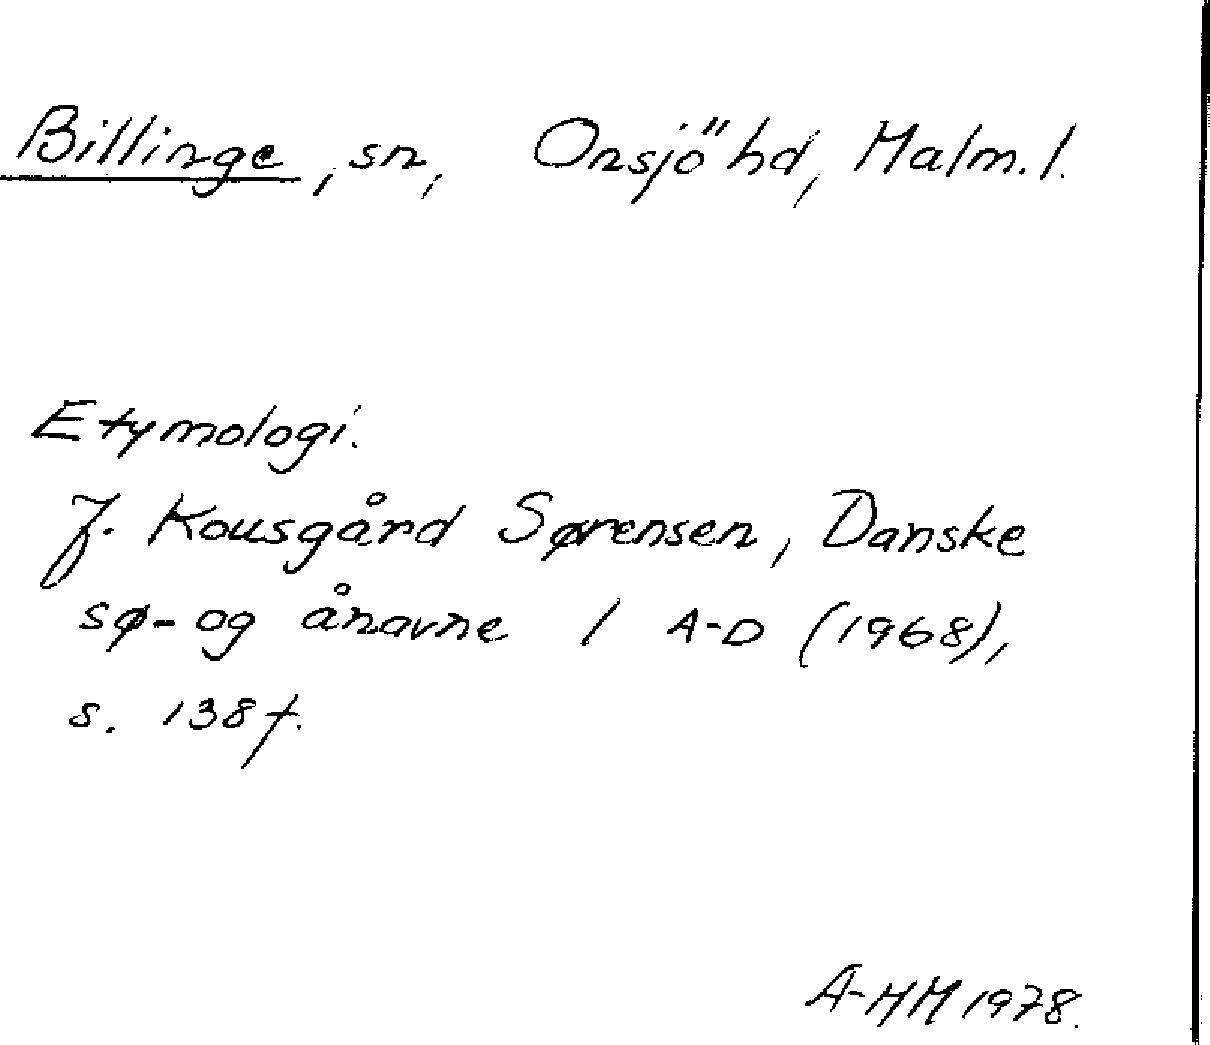 Billinge, sn, Onsjö hd, Malm. l.
Etymologi.
J. Kousgård Sørensen, Danske
sø- og ånavne 1 A-D (1968),
s. 138 f.
A-HM 1978.